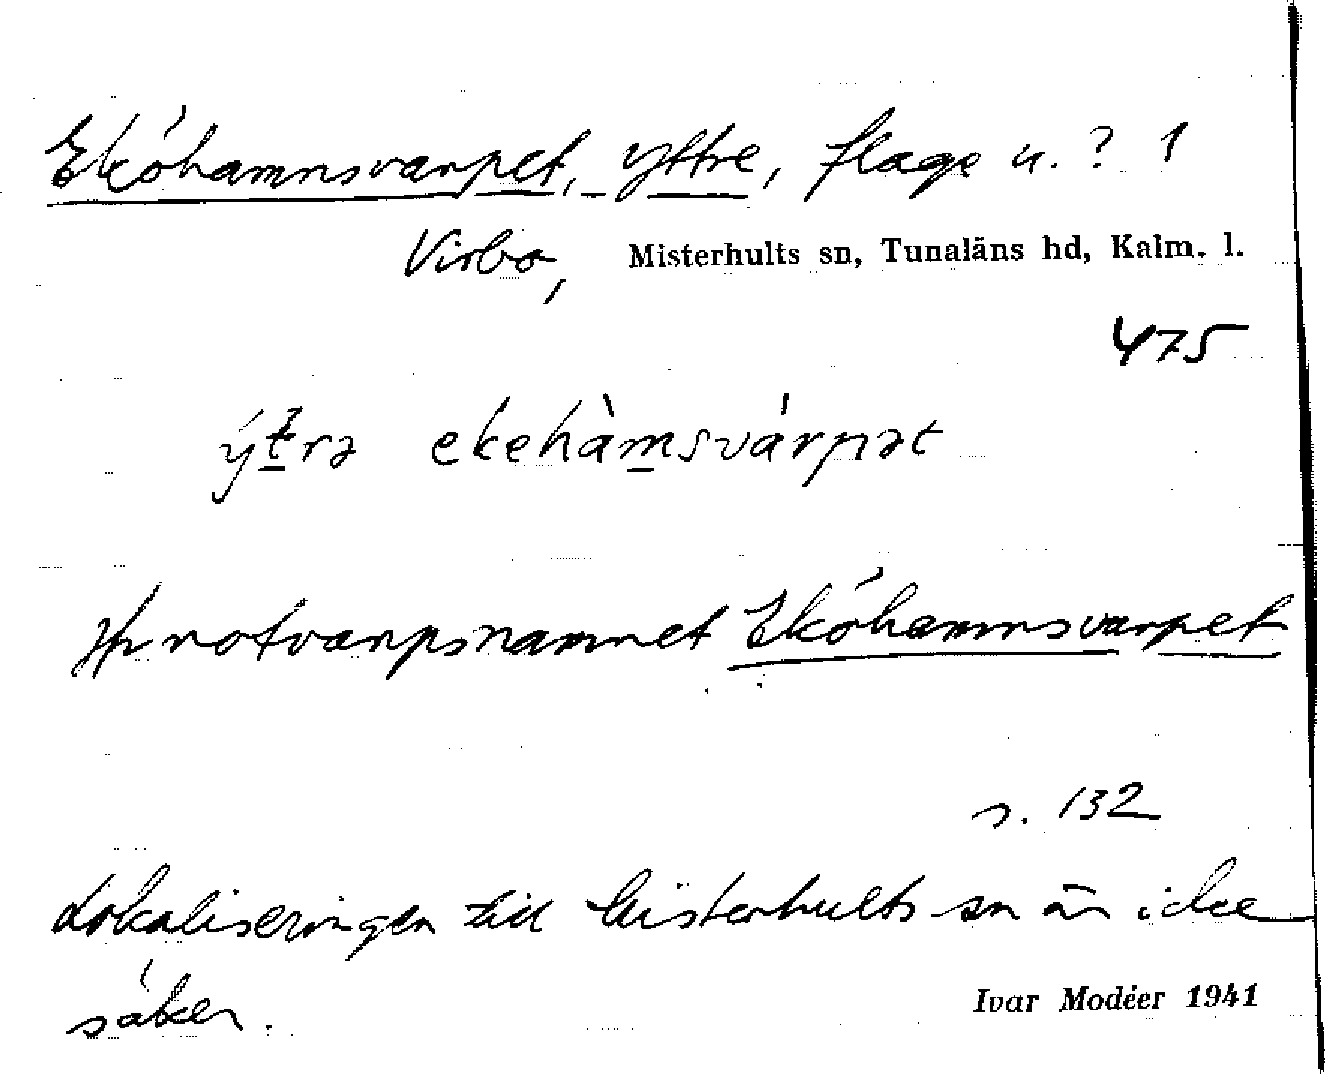 Ekóhamnsvarpet, Yttre, flage u. ? 1
Virbo, Misterhults sn, Tunaläns hd, Kalm. l.
475
ýt̠rə ekehàm̠svárpət
notvarpsnamnet Ekóhamnsvarpet
s. 132
Lokaliseringen till Misterhults sn är icke
säker.
Ivar Modéer 1941